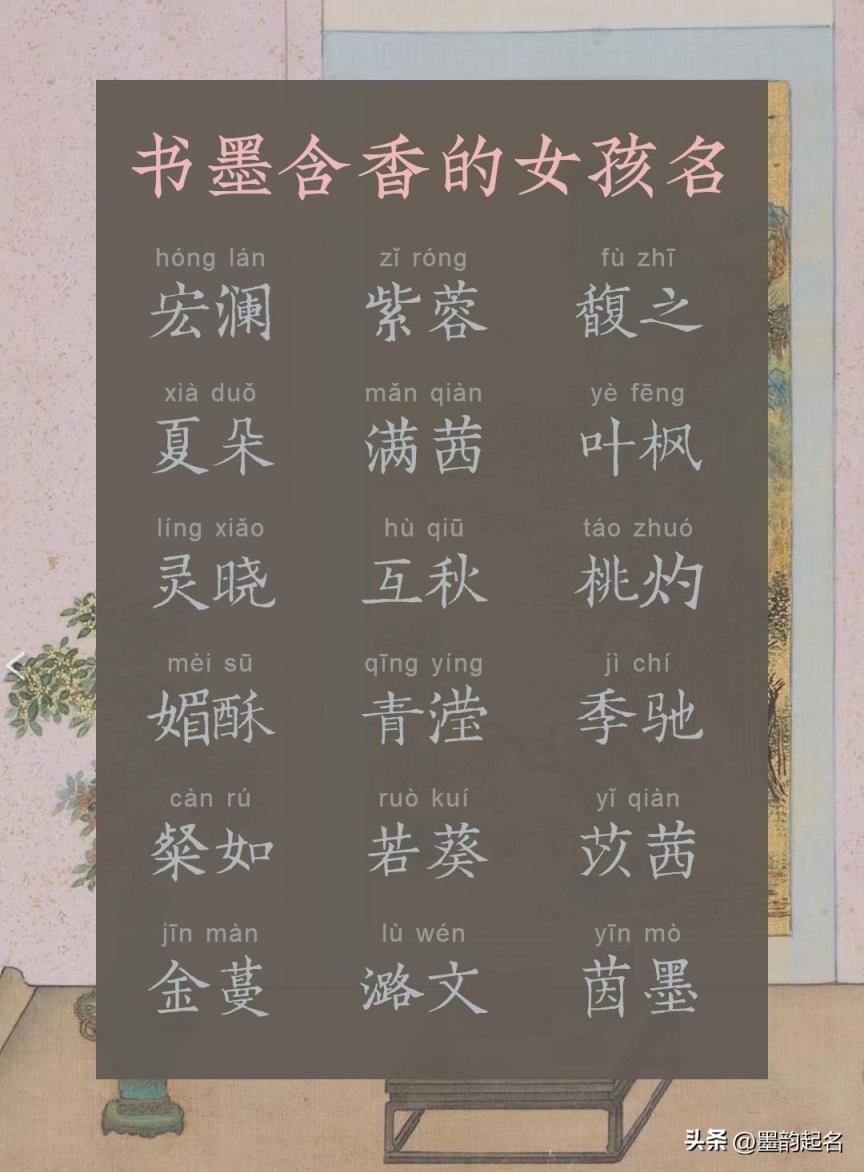 书墨含香的女孩名
hóng lán zǐ róng fù zhī
宏澜 紫蓉 馥之
xià duǒ mǎn qiàn yè fēng
夏朵 满茜 叶枫
líng xiǎo hù qiū táo zhuó
灵晓 互秋 桃灼
mèi sū qīng yíng jì chí
媚酥 青滢 季驰
càn rú ruò kuí yǐ qiàn
粲如 若葵 苡茜
jīn màn lù wén yīn mò
金蔓 潞文 茵墨
头条 @墨韵起名